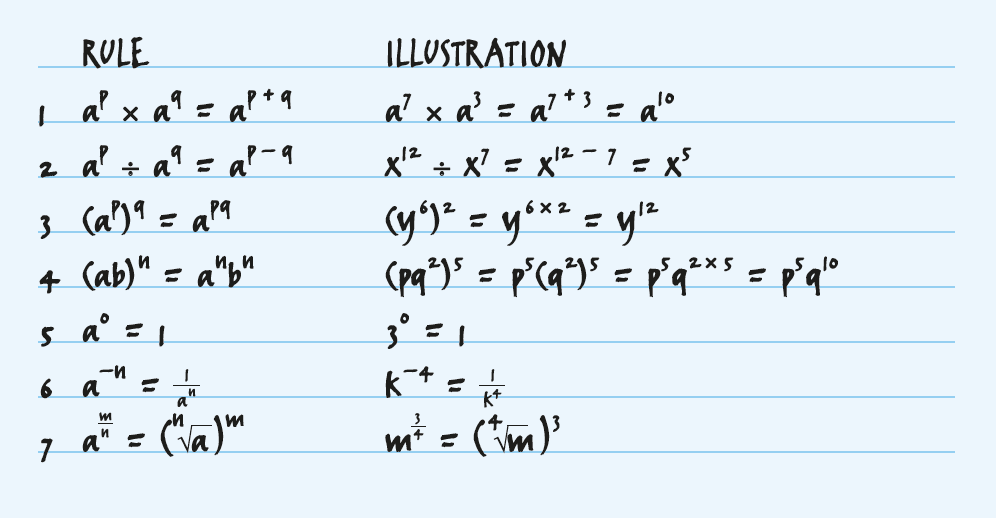 RULE ILLUSTRATION
1 aᵖ × a^q = a^(p + q) a⁷ × a³ = a⁷ ⁺ ³ = a¹⁰
2 aᵖ ÷ a^q = a^(p − q) x¹² ÷ x⁷ = x¹² ⁻ ⁷ = x⁵
3 (aᵖ)^q = a^(pq) (y⁶)² = y^(6 × 2) = y¹²
4 (ab)ⁿ = aⁿbⁿ (pq²)⁵ = p⁵(q²)⁵ = p⁵q^(2 × 5) = p⁵q¹⁰
5 a⁰ = 1 3⁰ = 1
6 a⁻ⁿ = 1/aⁿ k⁻⁴ = 1/k⁴
7 a^(m/n) = (ⁿ√a)ᵐ m^(3/4) = (⁴√m)³